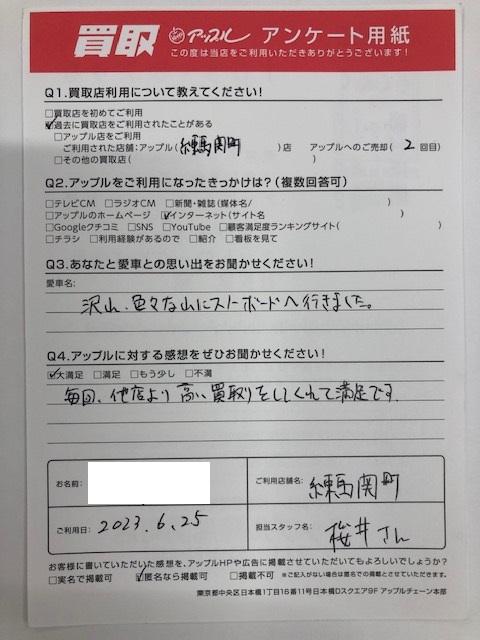 買取 アップル アンケート用紙
この度は当店をご利用いただきありがとうございます!
Q1.買取店利用について教えてください!
□買取店を初めてご利用
☑過去に買取店をご利用されたことがある
□アップル店をご利用
ご利用された店舗:アップル(練馬関町)店 アップルへのご売却(2回目)
□その他の買取店( )
Q2.アップルをご利用になったきっかけは?(複数回答可)
□テレビCM □ラジオCM □新聞・雑誌(媒体名/ )
□アップルのホームページ ☑インターネット(サイト名 )
□Googleクチコミ □SNS □YouTube □顧客満足度ランキングサイト( )
□チラシ □利用経験があるので □紹介 □看板を見て
Q3.あなたと愛車との思い出をお聞かせください!
愛車名:
沢山、色々な山にスノーボードへ行きました。
Q4.アップルに対する感想をぜひお聞かせください!
☑大満足 □満足 □もう少し □不満
毎回、他店より高い買取りをしてくれて満足です。
お名前:
ご利用店舗名: 練馬関町
ご利用日: 2023.6.25
担当スタッフ名: 桜井さん
お客様に書いていただいた感想を、アップルHPや広告に掲載させていただいてもよろしいでしょうか?
□実名で掲載可 ☑匿名なら掲載可 □掲載不可 ※ご記入がない場合は匿名での掲載とさせていただきます。
東京都中央区日本橋1丁目16番11号日本橋Dスクエア9F アップルチェーン本部